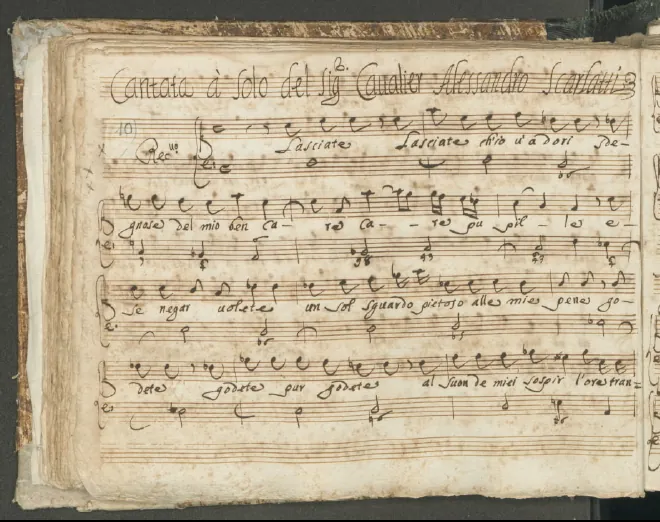 Cantata à Solo del Sigr. Caualier Alessandro Scarlatti
10
Rec.uo
Lasciate Lasciate ch'io v'adori sde-
gnose del mio ben ca- re ca- - re pu pil- le e-
se negar uolete un sol sguardo pietoso alle mie pene go-
dete godete pur godete al suon de miei sospir l'ore tran-